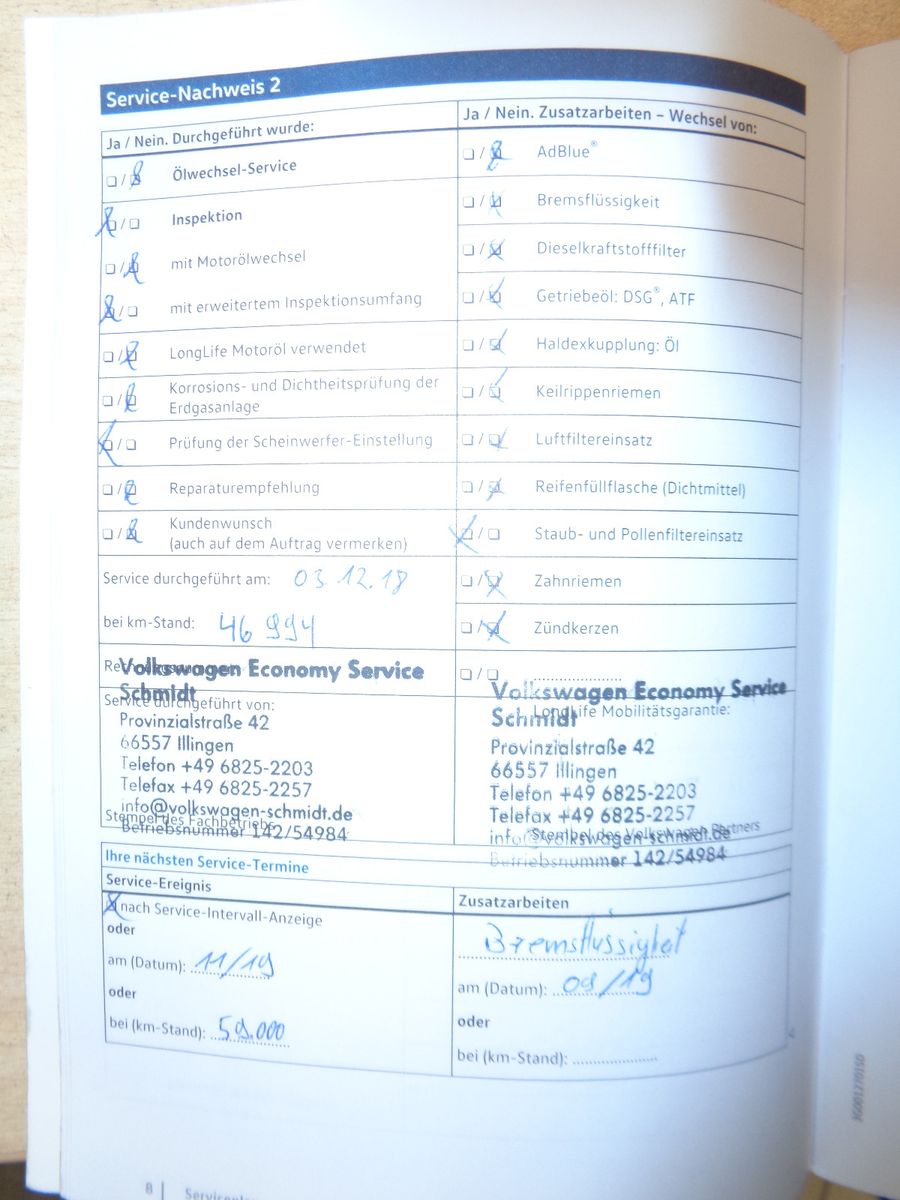 Service-Nachweis 2
Ja / Nein. Durchgeführt wurde:
☐ / ☒ Ölwechsel-Service
☒ / ☐ Inspektion
☐ / ☒ mit Motorölwechsel
☒ / ☐ mit erweitertem Inspektionsumfang
☐ / ☒ LongLife Motoröl verwendet
☐ / ☒ Korrosions- und Dichtheitsprüfung der
Erdgasanlage
☒ / ☐ Prüfung der Scheinwerfer-Einstellung
☐ / ☒ Reparaturempfehlung
☐ / ☒ Kundenwunsch
(auch auf dem Auftrag vermerken)
Service durchgeführt am: 03.12.18
bei km-Stand: 46 994
Volkswagen Economy Service
Schmidt
Service durchgeführt von:
Provinzialstraße 42
66557 Illingen
Telefon +49 6825-2203
Telefax +49 6825-2257
info@volkswagen-schmidt.de
Stempel des Fachbetriebs
Betriebsnummer 142/54984
Ja / Nein. Zusatzarbeiten – Wechsel von:
☐ / ☒ AdBlue®
☐ / ☒ Bremsflüssigkeit
☐ / ☒ Dieselkraftstofffilter
☐ / ☒ Getriebeöl: DSG®, ATF
☐ / ☒ Haldexkupplung: Öl
☐ / ☒ Keilrippenriemen
☐ / ☒ Luftfiltereinsatz
☐ / ☒ Reifenfüllflasche (Dichtmittel)
☒ / ☐ Staub- und Pollenfiltereinsatz
☐ / ☒ Zahnriemen
☐ / ☒ Zündkerzen
☐ / ☐ ......................
Volkswagen Economy Service
Schmidt
LongLife Mobilitätsgarantie:
Provinzialstraße 42
66557 Illingen
Telefon +49 6825-2203
Telefax +49 6825-2257
info@volkswagen-schmidt.de
Stempel des Volkswagen Partners
Betriebsnummer 142/54984
Ihre nächsten Service-Termine
Service-Ereignis
☒ nach Service-Intervall-Anzeige
oder
am (Datum): 11/19
oder
bei (km-Stand): 59.000
Zusatzarbeiten
Bremsflüssigkeit
am (Datum): 09/19
oder
bei (km-Stand): ....................
8